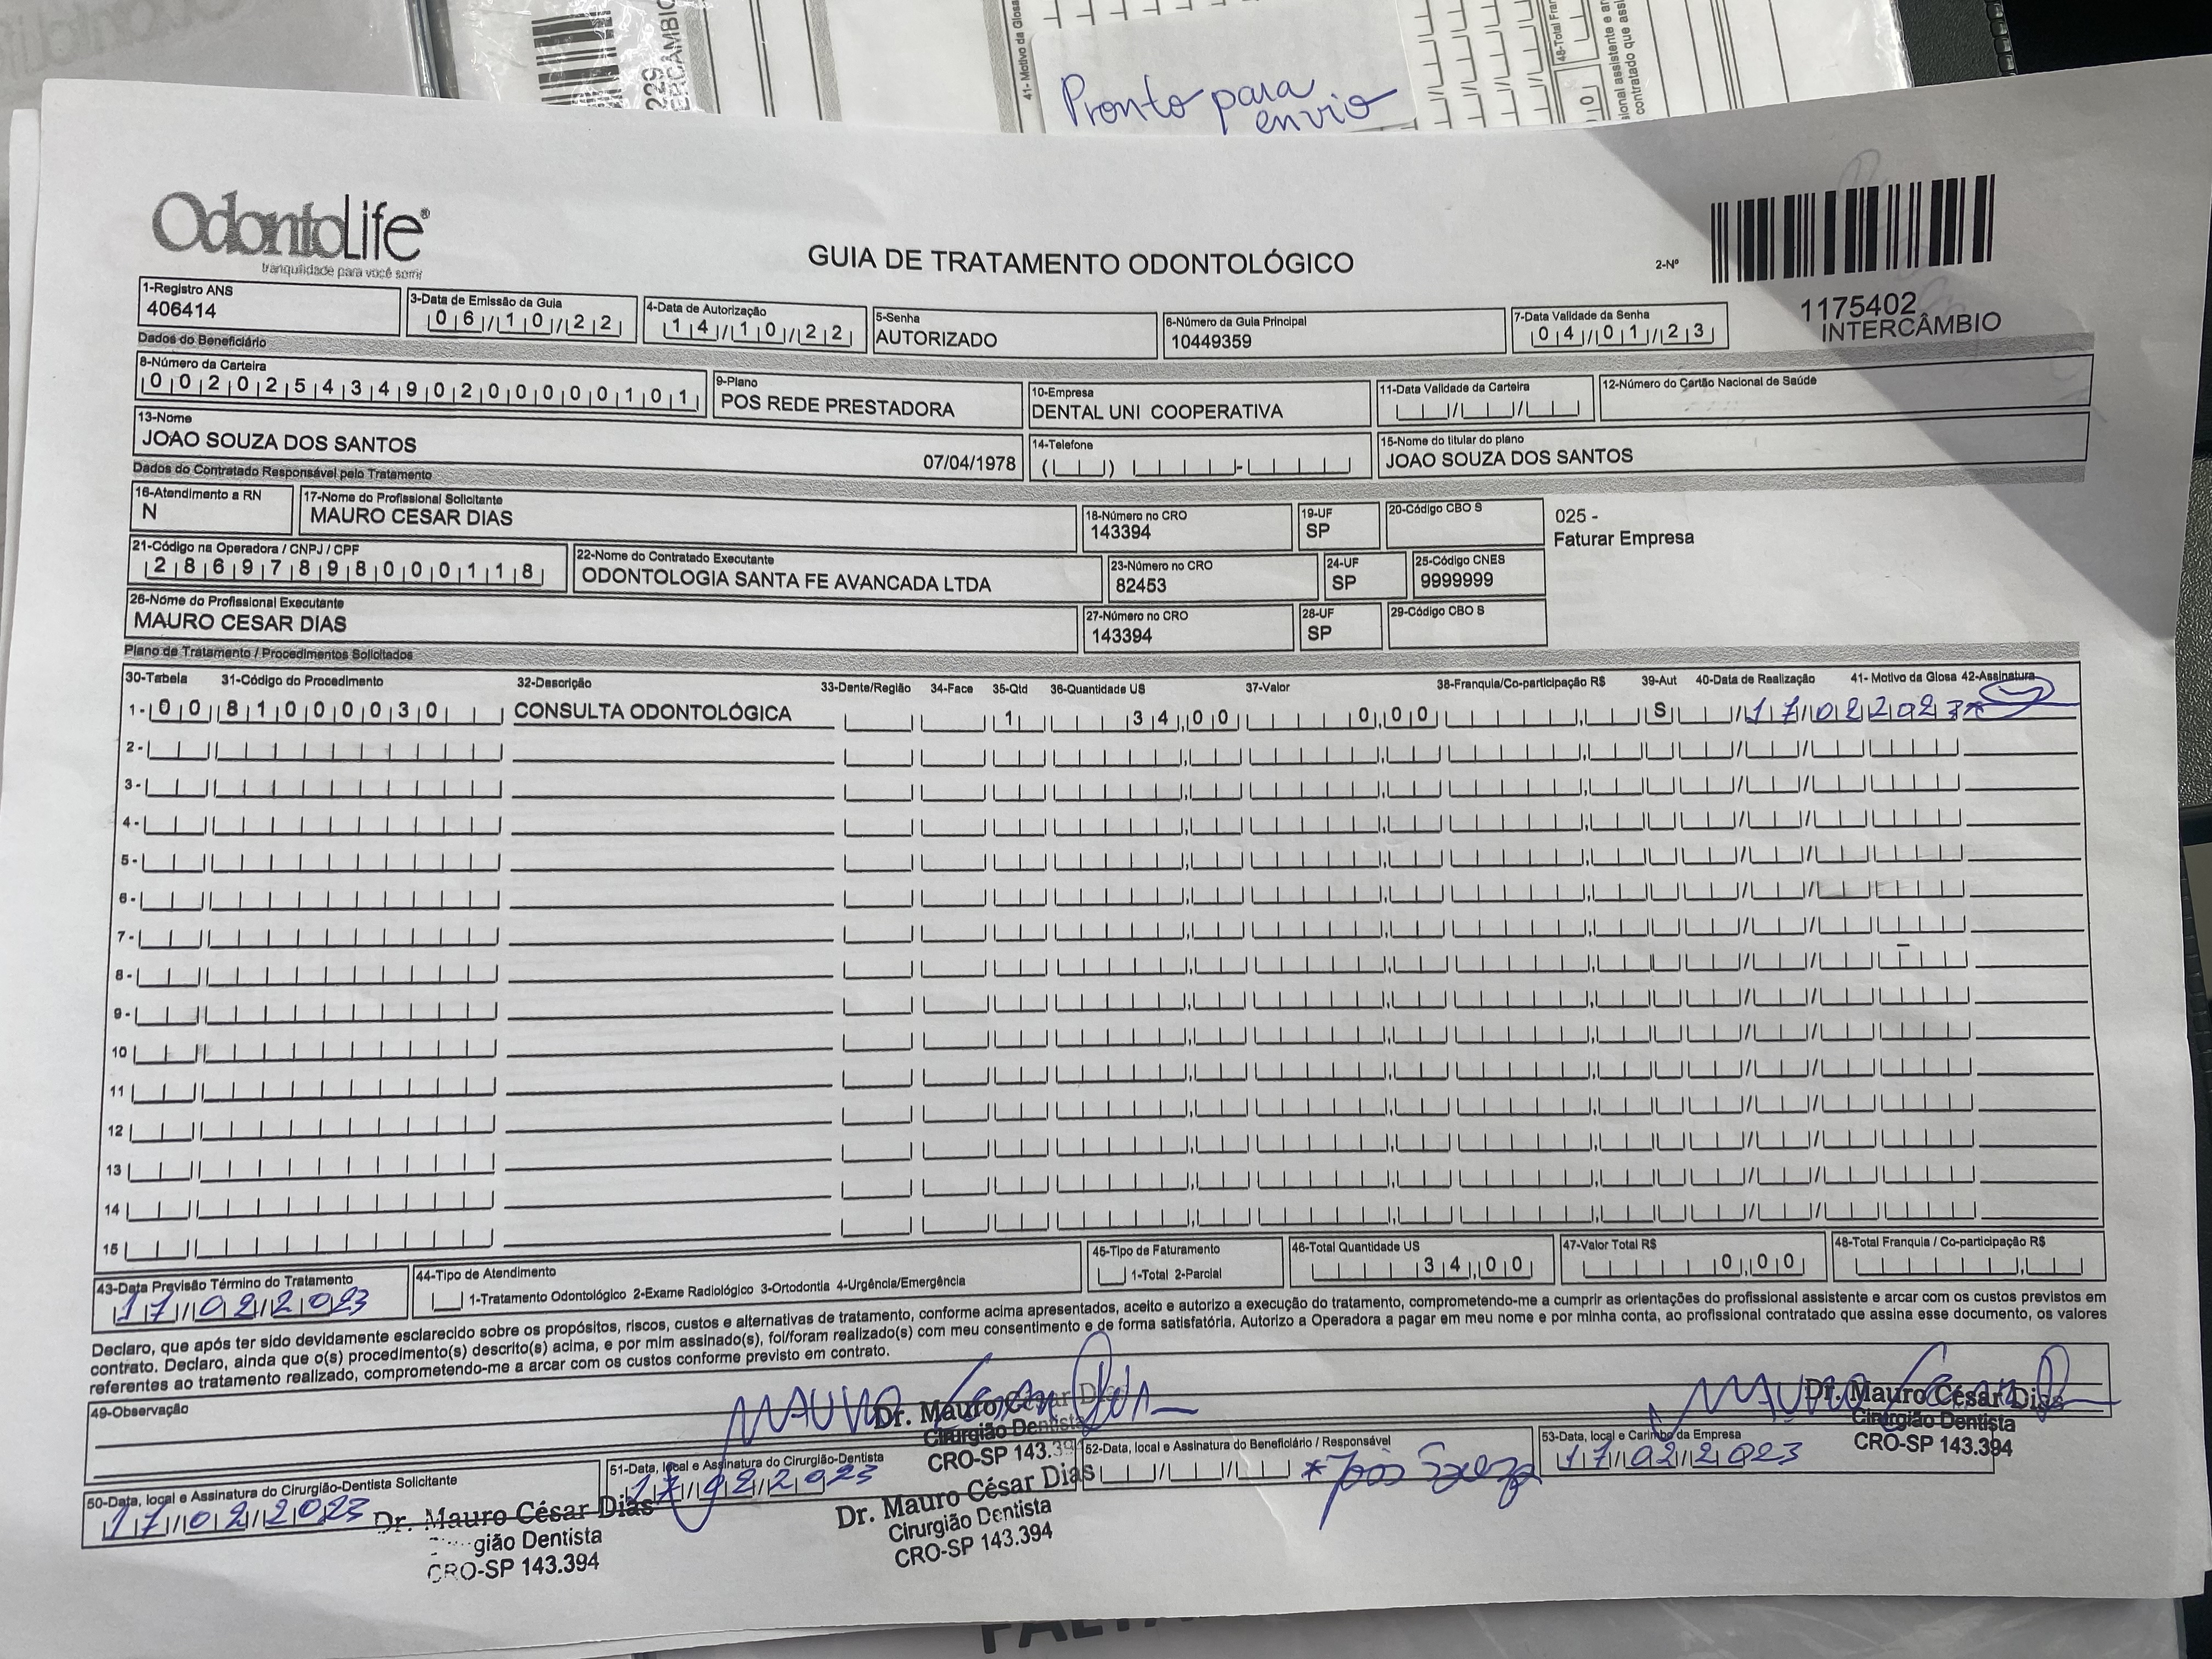 229
ERCAMBIO
41- Motivo da Glosa
48-Total Fran
Pronto para
envio
OdontoLife®
tranquilidade para você sorrir
GUIA DE TRATAMENTO ODONTOLÓGICO
2-Nº
1175402
INTERCÂMBIO
1-Registro ANS
406414
3-Data de Emissão da Guia
06/10/22
4-Data de Autorização
14/10/22
5-Senha
AUTORIZADO
6-Número da Guia Principal
10449359
7-Data Validade da Senha
04/01/23
Dados do Beneficiário
8-Número da Carteira
00202543490200000101
9-Plano
POS REDE PRESTADORA
10-Empresa
DENTAL UNI COOPERATIVA
11-Data Validade da Carteira
12-Número do Cartão Nacional de Saúde
13-Nome
JOAO SOUZA DOS SANTOS
07/04/1978
14-Telefone
15-Nome do titular do plano
JOAO SOUZA DOS SANTOS
Dados do Contratado Responsável pelo Tratamento
16-Atendimento a RN
N
17-Nome do Profissional Solicitante
MAURO CESAR DIAS
18-Número no CRO
143394
19-UF
SP
20-Código CBO S
025 -
Faturar Empresa
21-Código na Operadora / CNPJ / CPF
28697898000118
22-Nome do Contratado Executante
ODONTOLOGIA SANTA FE AVANCADA LTDA
23-Número no CRO
82453
24-UF
SP
25-Código CNES
9999999
26-Nome do Profissional Executante
MAURO CESAR DIAS
27-Número no CRO
143394
28-UF
SP
29-Código CBO S
Plano de Tratamento / Procedimentos Solicitados
30-Tabela 31-Código do Procedimento 32-Descrição 33-Dente/Região 34-Face 35-Qtd 36-Quantidade US 37-Valor 38-Franquia/Co-participação R$ 39-Aut 40-Data de Realização 41- Motivo da Glosa 42-Assinatura
1- 00 81000030 CONSULTA ODONTOLÓGICA 1 34,00 0,00 S 17/02/2023
2-
3-
4-
5-
6-
7-
8-
9-
10
11
12
13
14
15
43-Data Previsão Término do Tratamento
17/02/2023
44-Tipo de Atendimento
1-Tratamento Odontológico 2-Exame Radiológico 3-Ortodontia 4-Urgência/Emergência
45-Tipo de Faturamento
1-Total 2-Parcial
46-Total Quantidade US
34,00
47-Valor Total R$
0,00
48-Total Franquia / Co-participação R$
Declaro, que após ter sido devidamente esclarecido sobre os propósitos, riscos, custos e alternativas de tratamento, conforme acima apresentados, aceito e autorizo a execução do tratamento, comprometendo-me a cumprir as orientações do profissional assistente e arcar com os custos previstos em
contrato. Declaro, ainda que o(s) procedimento(s) descrito(s) acima, e por mim assinado(s), foi/foram realizado(s) com meu consentimento e de forma satisfatória. Autorizo a Operadora a pagar em meu nome e por minha conta, ao profissional contratado que assina esse documento, os valores
referentes ao tratamento realizado, comprometendo-me a arcar com os custos conforme previsto em contrato.
49-Observação
Mauro Cesar Dias
Dr. Mauro César Dias
Cirurgião Dentista
CRO-SP 143.39
Mauro Cesar D
Dr. Mauro César Dias
Cirurgião Dentista
CRO-SP 143.394
50-Data, local e Assinatura do Cirurgião-Dentista Solicitante
17/02/2023
Dr. Mauro César Dias
gião Dentista
CRO-SP 143.394
51-Data, local e Assinatura do Cirurgião-Dentista
17/02/2023
Dr. Mauro César Dias
Cirurgião Dentista
CRO-SP 143.394
52-Data, local e Assinatura do Beneficiário / Responsável
João Souza
53-Data, local e Carimbo da Empresa
17/02/2023